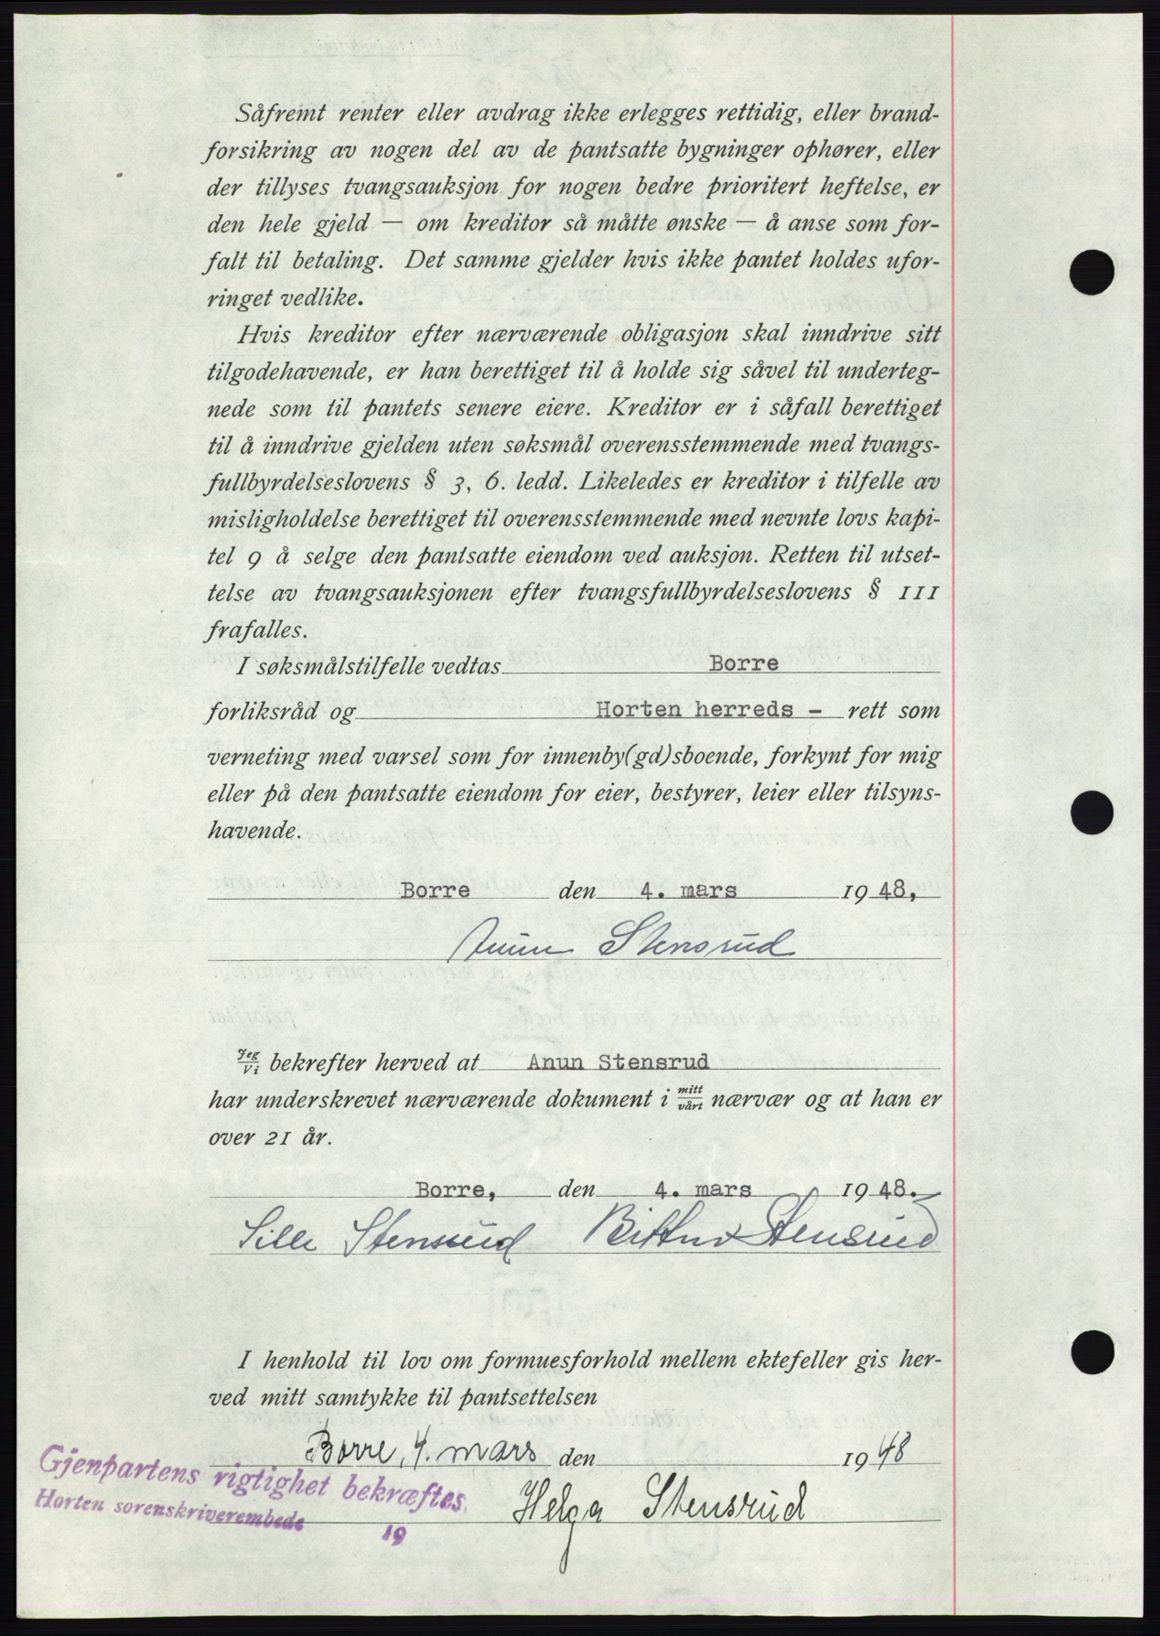 Såfremt renter eller avdrag ikke erlegges rettidig, eller brand-
forsikring av nogen del av de pantsatte bygninger ophører, eller
der tillyses tvangsauksjon for nogen bedre prioritert heftelse, er
den hele gjeld — om kreditor så måtte ønske — å anse som for-
falt til betaling. Det samme gjelder hvis ikke pantet holdes ufor-
ringet vedlike.
Hvis kreditor efter nærværende obligasjon skal inndrive sitt
tilgodehavende, er han berettiget til å holde sig såvel til underteg-
nede som til pantets senere eiere. Kreditor er i såfall berettiget
til å inndrive gjelden uten søksmål overensstemmende med tvangs-
fullbyrdelseslovens § 3, 6. ledd. Likeledes er kreditor i tilfelle av
misligholdelse berettiget til overensstemmende med nevnte lovs kapi-
tel 9 å selge den pantsatte eiendom ved auksjon. Retten til utset-
telse av tvangsauksjonen efter tvangsfullbyrdelseslovens § 111
frafalles.
I søksmålstilfelle vedtas Borre
forliksråd og Horten herreds - rett som
verneting med varsel som for innenby(gd)sboende, forkynt for mig
eller på den pantsatte eiendom for eier, bestyrer, leier eller tilsyns-
havende.
Borre den 4. mars 1948.
Anun Stensrud
Jeg/Vi bekrefter herved at Anun Stensrud
har underskrevet nærværende dokument i mitt/vårt nærvær og at han er
over 21 år.
Borre, den 4. mars 1948.
Stensrud Stensrud
I henhold til lov om formuesforhold mellem ektefeller gis her-
ved mitt samtykke til pantsettelsen
Borre, 4. mars den 1948
Gjenpartens rigtighet bekræftes
Horten sorenskriverembede
19
Helga Stensrud